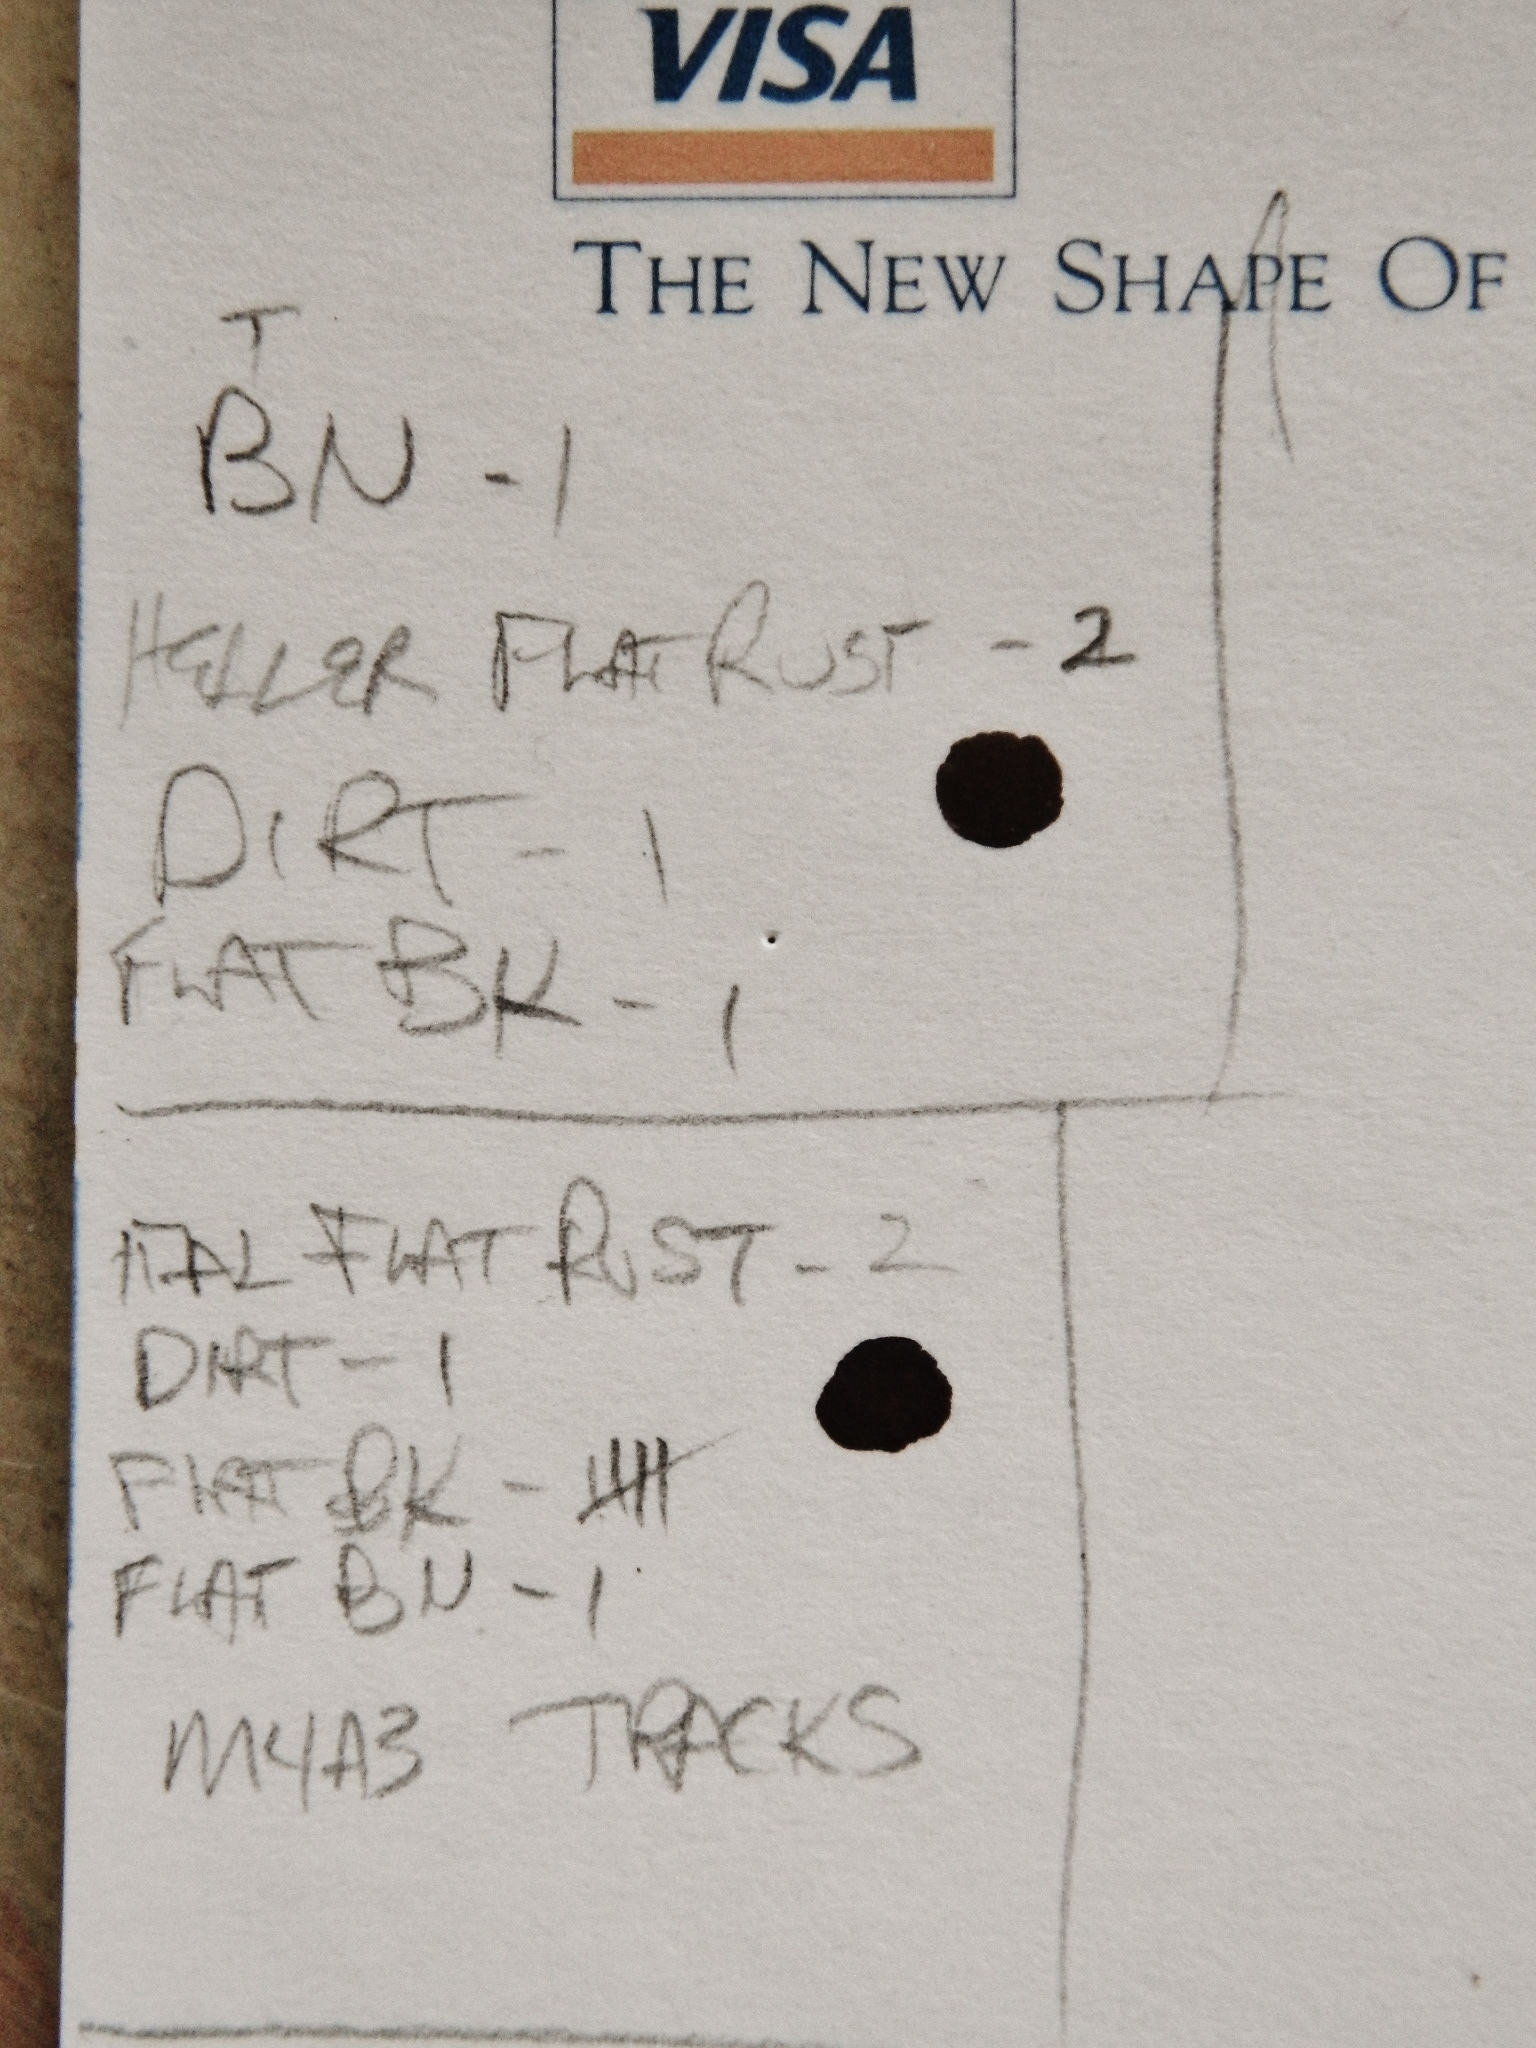 VISA
THE NEW SHAPE OF
T
BN - 1
HELLER FLAT RUST - 2
DIRT - 1
FLAT BK - 1
FLAT RUST - 2
DIRT - 1
FLAT BK - 𝍸
FLAT BN - 1
M4A3 TRACKS